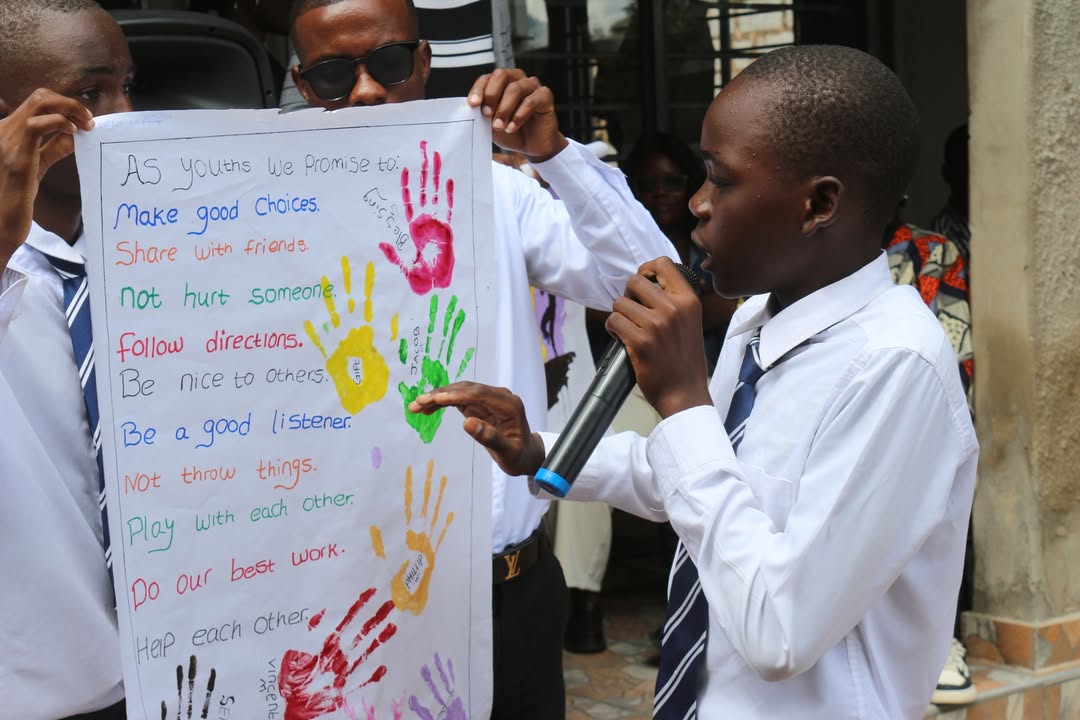 As youths we Promise to:
Make good Choices.
Share with friends.
Not hurt someone.
Follow directions.
Be nice to others.
Be a good listener.
Not throw things.
Play with each other.
Do our best work.
Help each other.
Blessing
Gift
JACOB
PHILLIP
Vincent
LV